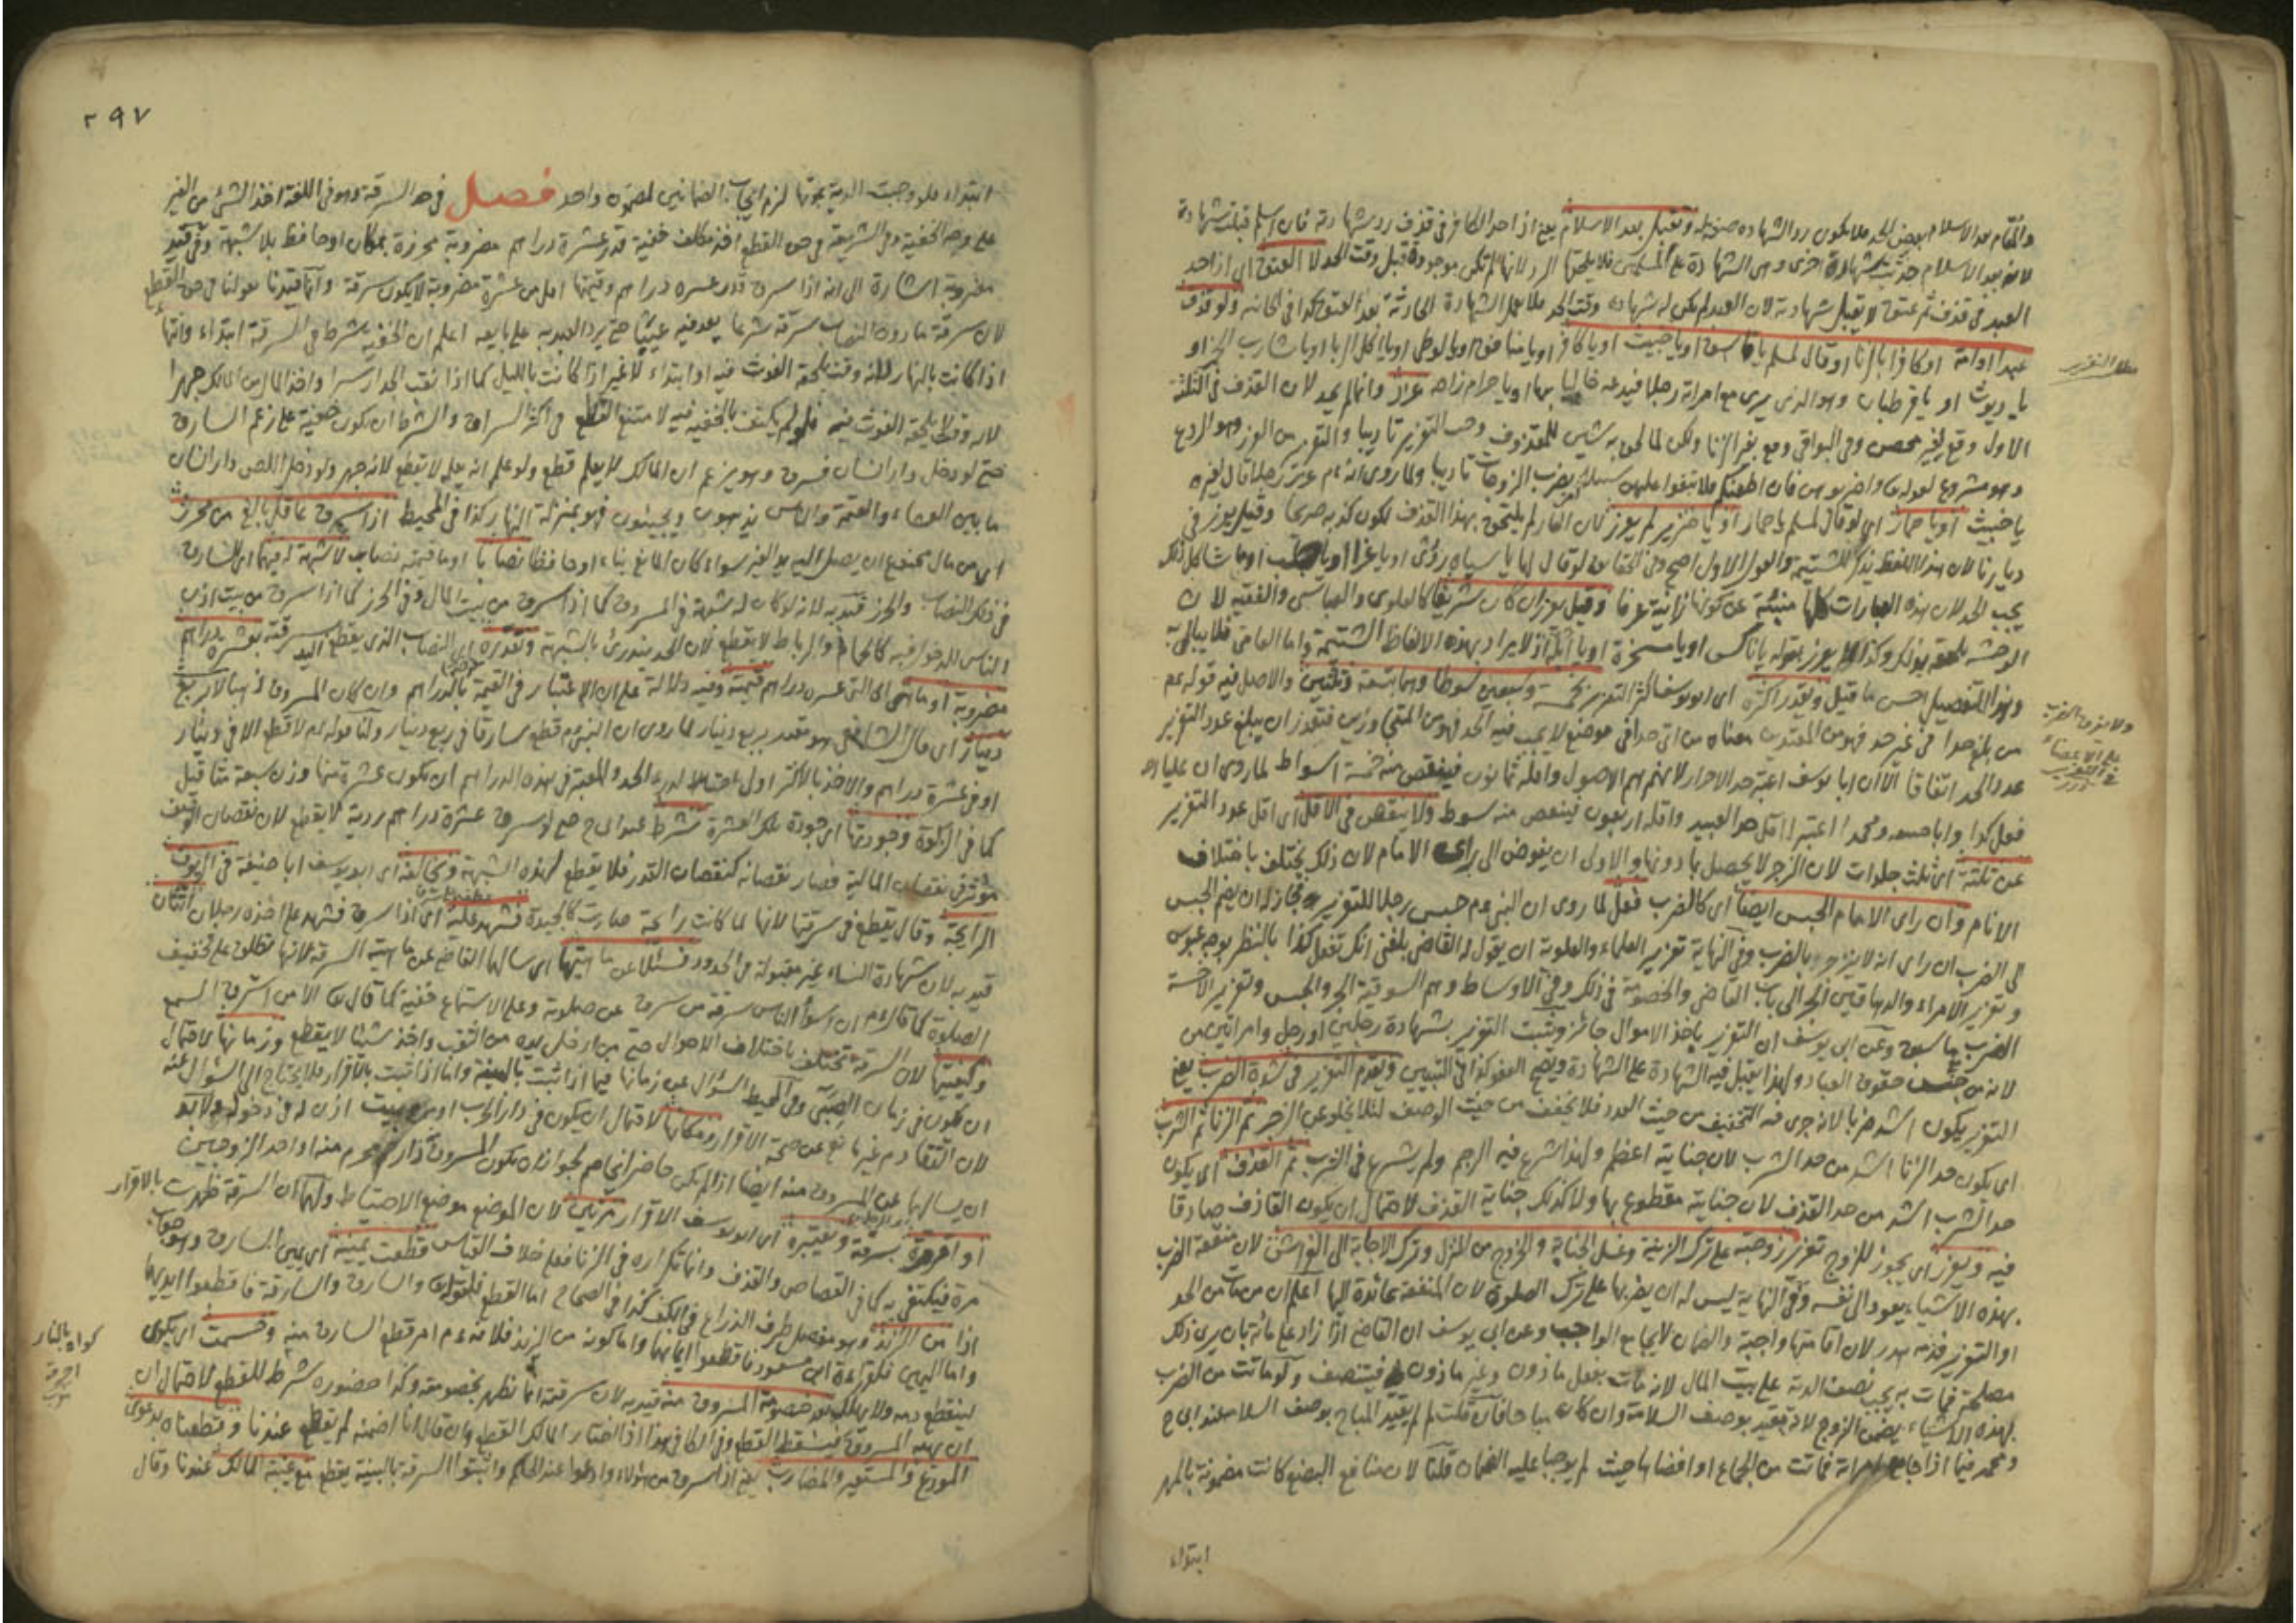 والمقام بعد الاسلام بعض الحد فلا يكون رد الشهادة صفة له وتقبل بعد الاسلام يعني اذا حد الكافر في قذف رد شهادته فان اسلم قبلت شهادته
لانه بعد الاسلام حدثت شهادة اخرى وهي الشهادة على المسلمين فلا يلحقها الرد لانها لم تكن موجودة قبل وقت الحد لا العتق اي اذا حد
العبد في قذف ثم عتق لا يقبل شهادته لان العبد لم يكن له شهادة وقت الحد
عبدا او امة او كافرا بالزنا او قال لمسلم يا فاسق او يا خبيث او يا كافر او يا منافق او يا لوطي او يا اكل الربا او يا شارب الخمر او
يا ديوث او يا قرطبان وهو الذي يرى مع امراته رجلا فيدعه خاليا بها او يا حرام زاده عزر وانما لم يحد لان القذف في الثلثة
الاول وقع لغير محصن وفي البواقي وقع بغير الزنا ولكن لما لحق به شين للمقذوف وجب التعزير تاديبا والتعزير من العزر وهو الردع
وهو مشروع لقوله تعالى واضربوهن فان اطعنكم فلا تبغوا عليهن سبيلا بضرب الزوجات تاديبا ولما روى انه عم عزر رجلا قال لغيره
يا خبيث او يا حمار اي لو قال لمسلم يا حمار او يا خنزير لم يعزر لان العار لم يلتحق بهذا القذف لكون كذبه صريحا وقيل يعزر في
ديارنا لان هذا اللفظ يذكر للشتيمة والقول الاول اصح وفي الحقايق لو قال لها يا سياه روي او يا غرا او
يجب الحد لان هذه العبارات كلها منبئة عن كونها زانية عرفا وقيل يعزر ان كان شريفا كالعلوي والعباسي والفقيه لان
الوحشة تلحقه بذلك وكذا لا يعزر بقوله يا ناكس او يا مسخرة او يا ابله اذ لا يراد بهذه الالفاظ الشتيمة واما العامي فلا يبالي به
وهذا التفصيل احسن ما قيل ويقدر اكثره اي ابو يوسف اكثر التعزير بخمسة وسبعين سوطا وهما بتسعة وثلثين والاصل فيه قوله عم
من بلغ حدا في غير حد فهو من المعتدين معناه من اتى حدا في موضع لا يجب فيه الحد فهو من المتجاوزين فتعذر ان يبلغ عدد التعزير
عدد الحد اتفاقا الا ان ابا يوسف اعتبر حد الاحرار لانهم هم الاصول واقله ثمانون فينقص منه خمسة اسواط لما روى ان عليا
فعل كذا وابا حنيفة ومحمدا اعتبرا اقل حد العبيد واقله اربعون فينقص منه سوط ولا ينقص في الاقل اي اقل عدد التعزير
عن ثلثة اي ثلث جلدات لان الزجر لا يحصل بما دونها والاولى ان يفوض الى راى الامام لان ذلك يختلف باختلاف
الانام وان راى الامام الحبس ايضا اي كالضرب فعل لما روى ان النبي عم حبس رجلا للتعزير فجاز له ان يضم الحبس
الى الضرب ان راى انه لا ينزجر بالضرب وفي النهاية تعزير العلماء والعلوية ان يقول له القاضي بلغني انك تفعل كذا بالنظر بوجه عبوس
وتعزير الامراء والدهاقين الجر الى باب القاضي والخصومة في ذلك وفي الاوساط وهم السوقية الجر والحبس وتعزير الاخسة
الضرب وعن ابي يوسف ان التعزير ياخذ الاموال جائز ويثبت التعزير بشهادة رجلين او رجل وامراتين
لانه من جنس حقوق العباد ولهذا يقبل فيه الشهادة على الشهادة ويصح العفو كذا في التبيين ويقدم التعزير في شدة الضرب يعني
التعزير يكون اشد ضربا لانه جرى فيه التخفيف من حيث العدد فلا يخفف من حيث الوصف لئلا يخلو عن الزجر ثم الزنا ثم الشرب
اي يكون حد الزنا اشد من حد الشرب لان جنايته اعظم ولهذا شرع فيه الرجم ولم يشرع في الشرب ثم القذف اي يكون
حد الشرب اشد من حد القذف لان جناية مقطوع بها ولا كذلك جناية القذف لاحتمال ان يكون القاذف صادقا
فيه ويعزر اي يجوز للزوج تعزير زوجته على ترك الزينة وغسل الجنابة والخروج من المنزل وترك الاجابة الى الفراش لان منفعة الضرب
بهذه الاشياء يعود الى نفسه وفي النهاية ليس له ان يضربها على ترك الصلوة لان المنفعة عائدة اليها اعلم ان من مات من الحد
او التعزير فدمه هدر لان اقامتها واجبة والضمان لا يجامع الواجب وعن ابي يوسف ان القاضي اذا زاد على مائة بان يرى ذلك
مصلحة فمات به يجب نصف الدية على بيت المال لانه مات بفعل ماذون وغير ماذون فينتصف ولو ماتت من الضرب
بهذه الاشياء يضمن الزوج لانه مقيد بوصف السلامة وان كان مباحا فان قلت لم لم يقيد المباح بوصف السلامة عند ابي ح
ومحمد فيما اذا جامع امراته فماتت من الجماع او افضاها حيث لم يوجبا عليه الضمان قلنا لان منافع البضع كانت مضمونة بالمهر
ابتداء
مطلب التعزير
ولا يفرق الضرب
على الاعضاء
في التعزير
٢٩٧
ابتداء فلو وجبت الدية بموتها لزم ايجاب الضمانين لمضمون واحد فصل في حد السرقة وهو في اللغة اخذ الشئ من الغير
على وجه الخفية وفي الشريعة في حق القطع اخذ مكلف خفية قدر عشرة دراهم مضروبة محرزة بمكان او حافظ بلا شبهة وفي قيد
مضروبة اشارة الى انه اذا سرق قدر عشرة دراهم وقيمتها اقل من عشرة مضروبة لا يكون سرقة وانما قيدنا بقولنا في حق القطع
لان سرقة ما دون النصاب سرقة شرعا يعد فيه عيبا حتى يرد العبد به على بايعه اعلم ان الخفية شرط في السرقة ابتداء وانتهاء
اذا كانت بالنهار لانه وقت يلحقه الغوث فيه او ابتداء لا غير اذا كانت بالليل كما اذا نقب الجدار سرا واخذ المال من المالك جهرا
لانه وقت لا يلحقه الغوث فيه فلو لم يكتف بالخفية فيه لامتنع القطع في اكثر السراق والشرط ان يكون خفية على زعم السارق
حتى لو دخل دار انسان فسرق وهو يزعم ان المالك لا يعلم قطع ولو علم انه يعلم لا يقطع لانه جهر ولو دخل اللص دار انسان
ما بين العشاء والعتمة والناس يذهبون ويجيئون فهو بمنزلة النهار كذا في المحيط اذا سرق عاقل بالغ من محرز
اي من مال ممنوع ان يصل اليه يد الغير سواء كان المانع بناء او حافظا نصابا او ما قيمته نصاب لا شبهة له فيهما اي للسارق
في ذلك النصاب والحرز قيد به لانه لو كان له شبهة في المسروق كما اذا سرق من بيت المال وفي الحرز كما اذا سرق من بيت اذن
للناس للدخول فيه كالحمام والرباط لا يقطع لان الحد يندرئ بالشبهة ونقدره اي النصاب الذي يقطع اليد سرقته بعشرة دراهم
مضروبة او ما هي اي التي عشرة دراهم قيمته وفيه دلالة على ان الاعتبار في القيمة بالدراهم وان كان المسروق ذهبا لا بربع
دينار اي قال الشافعي هو مقدر بربع دينار لما روى ان النبي عم قطع سارقا في ربع دينار ولنا قوله عم لا قطع الا في دينار
او في عشرة دراهم والاخذ بالاكثر اولى احتيالا لدرء الحد والمعتبر في هذه الدراهم ان يكون عشرة منها وزن سبعة مثاقيل
كما في الزكوة وجودتها اي جودة تلك العشرة شرط عند ابي ح حتى لو سرق عشرة دراهم ردية لا يقطع لان نقصان الوصف
مؤثر في نقصان المالية فصار نقصانه كنقصان القدر فلا يقطع لهذه الشبهة ويخالفه اي ابو يوسف ابا حنيفة في الزيوف
الرايجة وقال يقطع في سرقتها لانها لما كانت رائجة صارت كالجيدة فشهد عليه اي اذا سرق فشهد على اخذه رجلان اثنان
قيد به لان شهادة النساء غير مقبولة في الحدود فسئلا عن ماهيتها اي سالهما القاضي عن ماهية السرقة لانها تطلق على تخفيف
الصلوة كما قال عم ان اسوأ الناس سرقة من سرق عن صلوته وعلى الاستماع خفية كما قال تعالى الا من استرق السمع
وكيفيتها لان السرقة تختلف باختلاف الاحوال حتى من ادخل يده من الثقب واخذ شيئا لا يقطع وزمانها لاحتمال
ان يكون في زمان الصبى وفي المحيط السؤال عن زمانها فيما اذا ثبت بالبينة واما اذا ثبت بالاقرار فلا يحتاج الى السؤال عنه
لان التقادم غير مانع عن صحة الاقرار ومكانها لاحتمال ان يكون في دار الحرب او من بيت اذن له في دخوله ولا بد
ان يسالهما عن المسروق منه ايضا اذا لم يكن حاضرا يخاصم لجواز ان يكون المسروق ذا رحم محرم منه او احد الزوجين
او اقر مرة بسرقة ونعتبره اي ابو يوسف الاقرار مرتين لان الموضع موضع الاحتياط ولهما ان السرقة ظهرت بالاقرار
مرة فيكتفى به كما في القصاص والقذف وانما تكراره في الزنا فعلى خلاف القياس قطعت يمينه اي يمين السارق
اذا من الزند وهو مفصل طرف الذراع في الكف كذا في الصحاح اما القطع فلقوله تعالى والسارق والسارقة فاقطعوا ايديهما
واما اليمين فلقراءة ابن مسعود فاقطعوا ايمانهما واما كونه من الزند فلانه عم امر بقطع السارق منه وحسمت اي يكوى
لينقطع دمه بعد خصومة المسروق منه قيد به لان سرقته انما تظهر بخصومته وكذا حضوره شرط للقطع لاحتمال ان
ان يهبه المسروق فيسقط القطع وفي الكافي هذا اذا اختار المالك القطع وان قال انا اضمنه لم يقطع عندنا وقطعناه بدعوى
المودع والمستعير والمضارب يعني اذا سرق من هؤلاء وادعوا عند الحاكم واثبتوا السرقة بالبينة يقطع مع غيبة المالك عندنا وقال
كواه بالنار